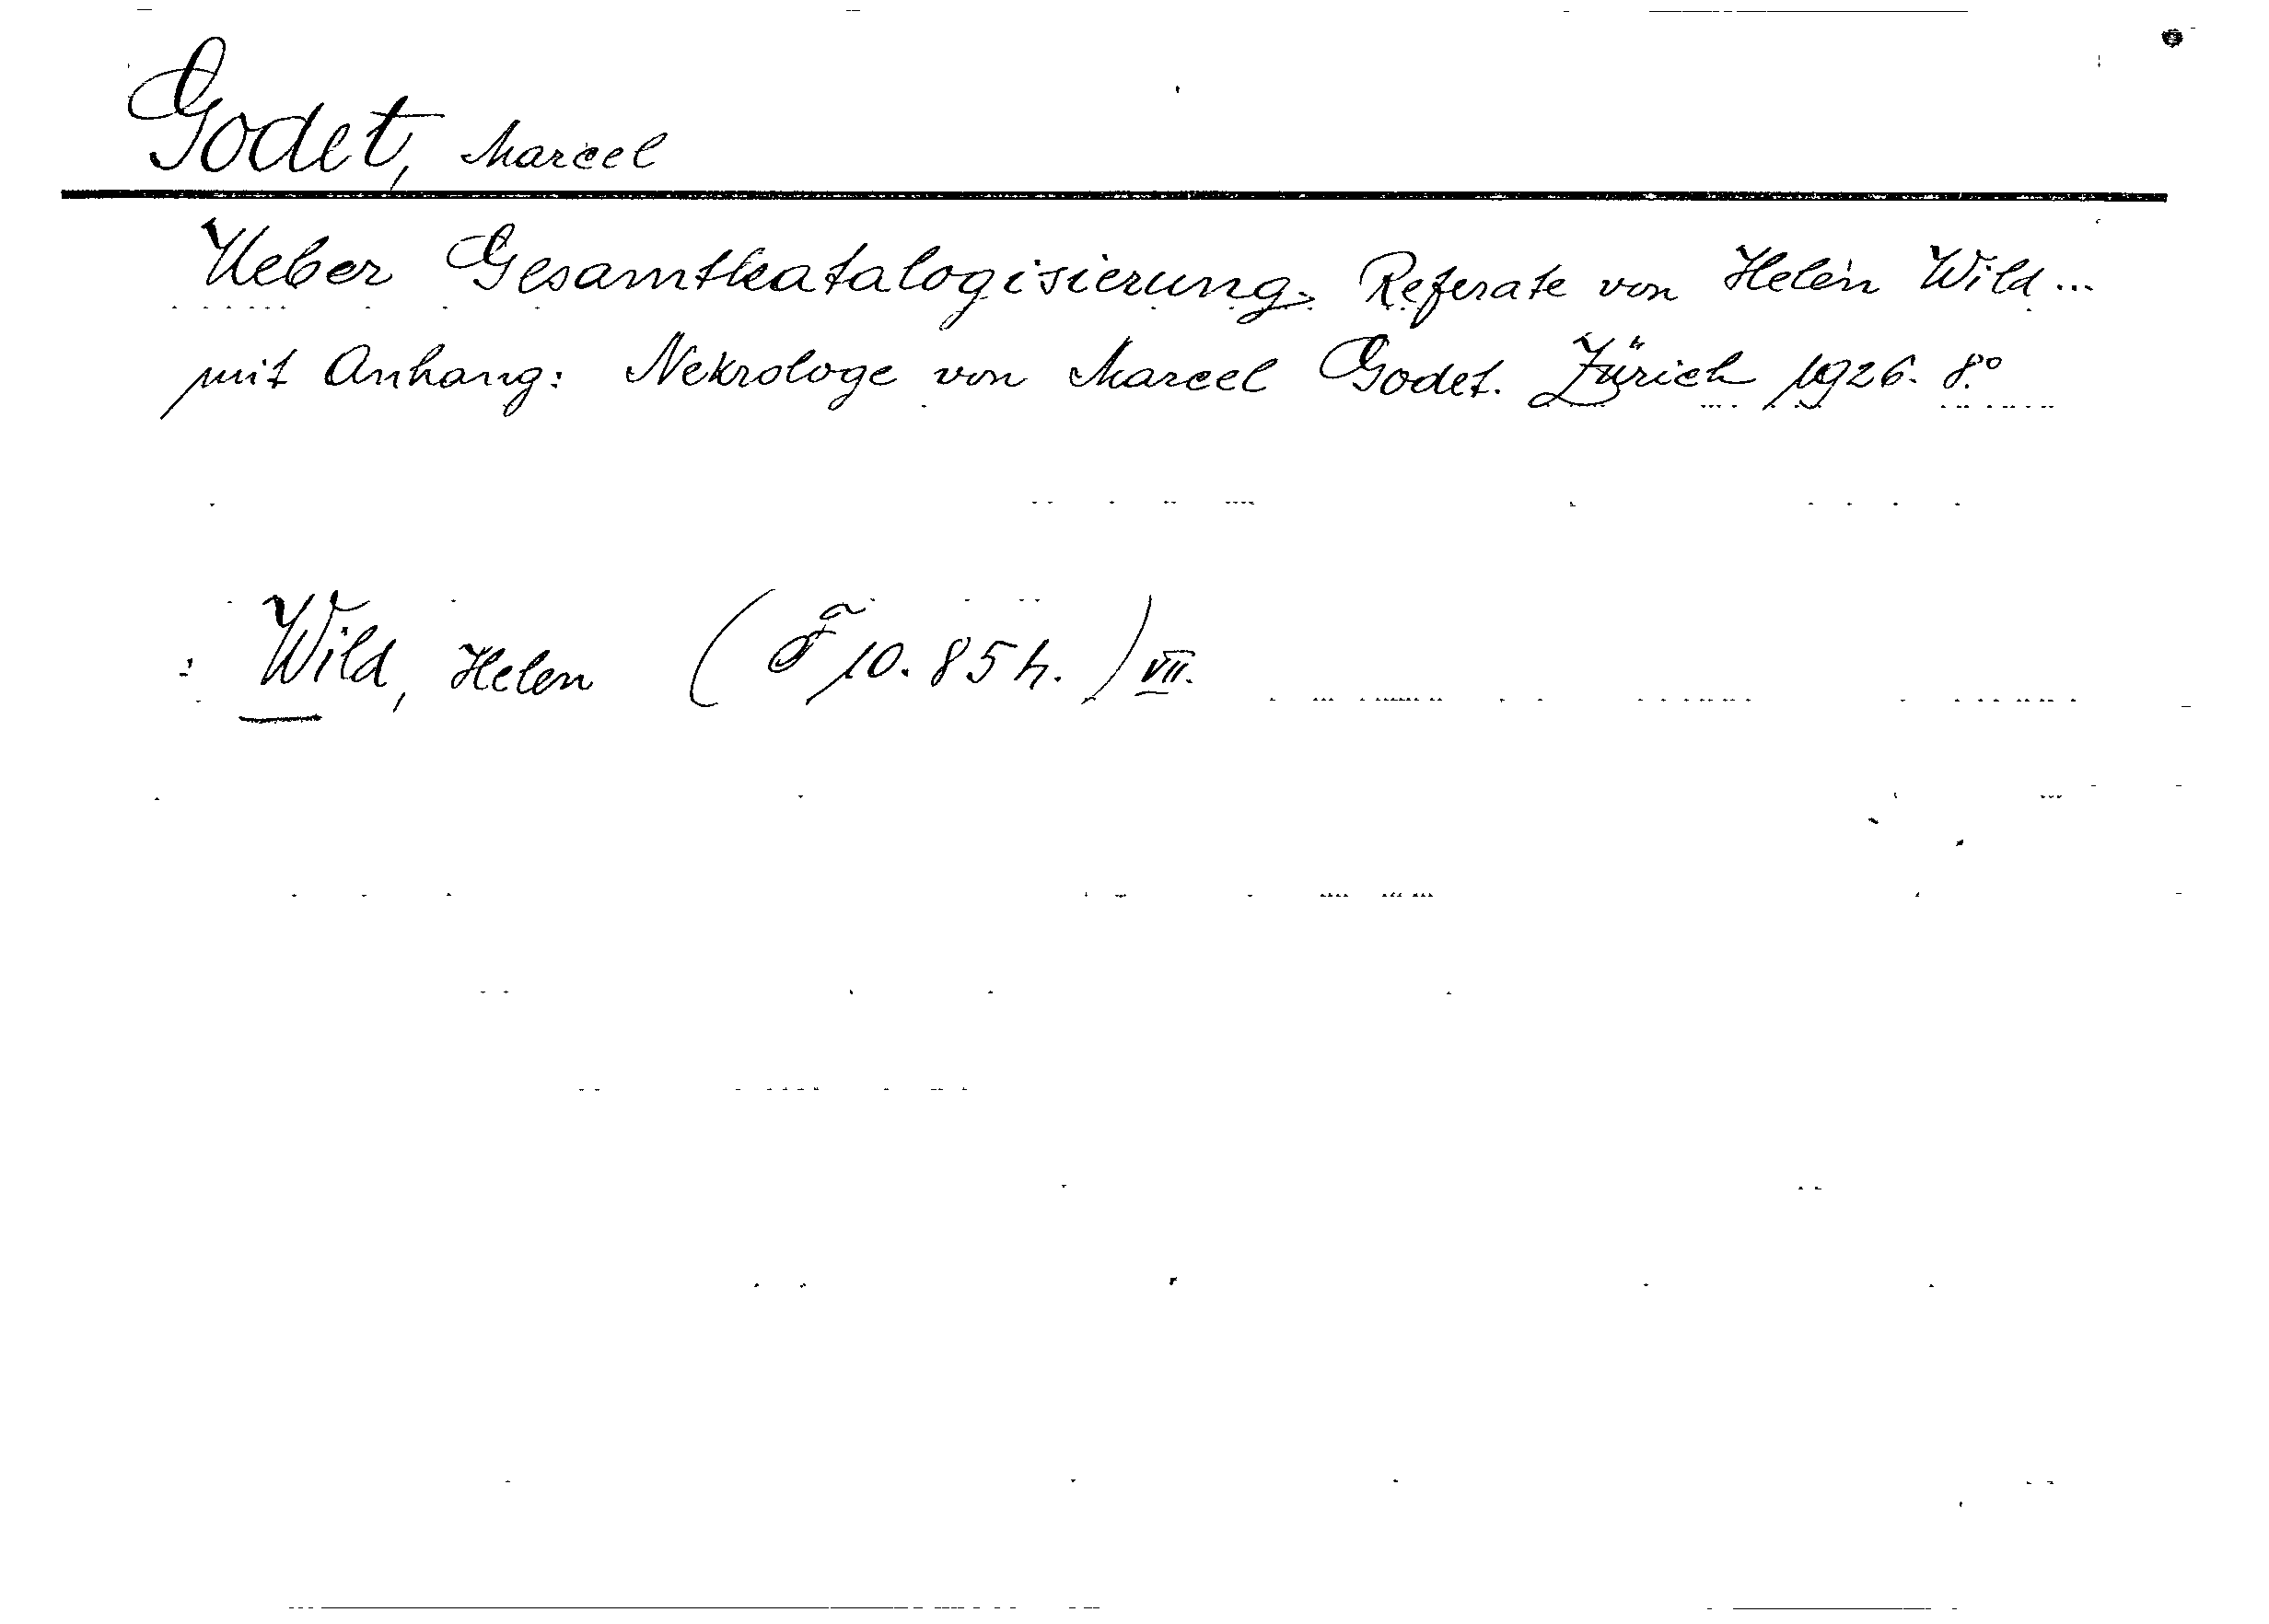 Godet, Marcel
Ueber Gesamtkatalogisierung. Referate von Helen Wild...
mit Anhang: Nekrologe von Marcel Godet. Zürich 1926. 8.º
: Wild, Helen ( F 10. 85 h. ) VII.